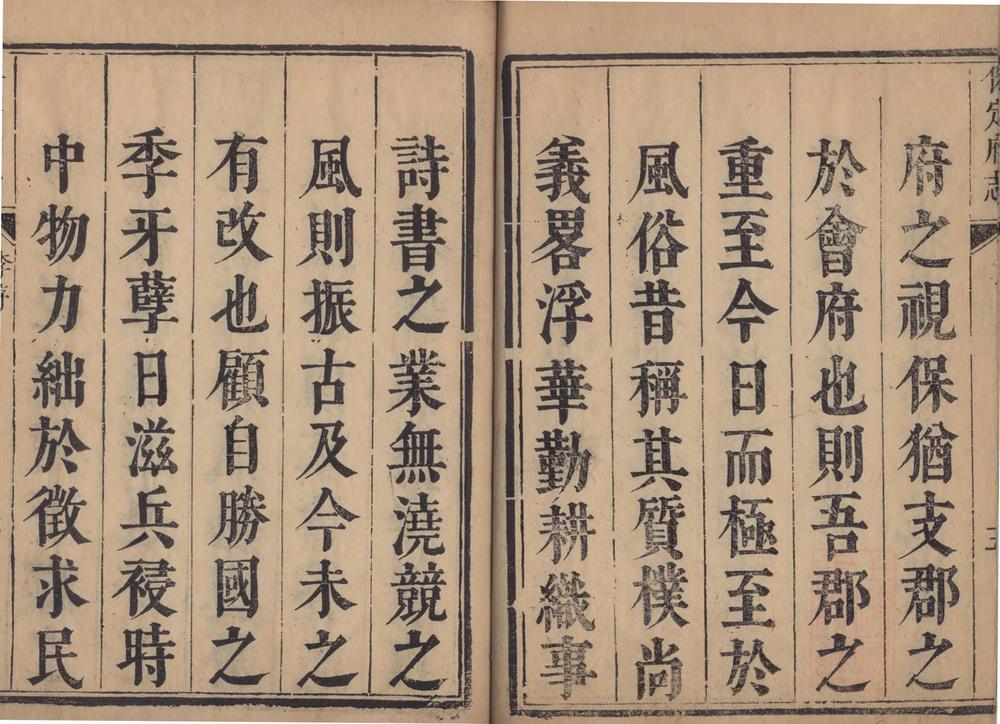 保定府志
五
府之視保猶支郡之
於會府也則吾郡之
重至今日而極至於
風俗昔稱其質樸尚
義畧浮華勤耕織事
詩書之業無澆競之
風則振古及今未之
有改也顧自勝國之
季牙孽日滋兵祲時
中物力絀於徵求民
李序